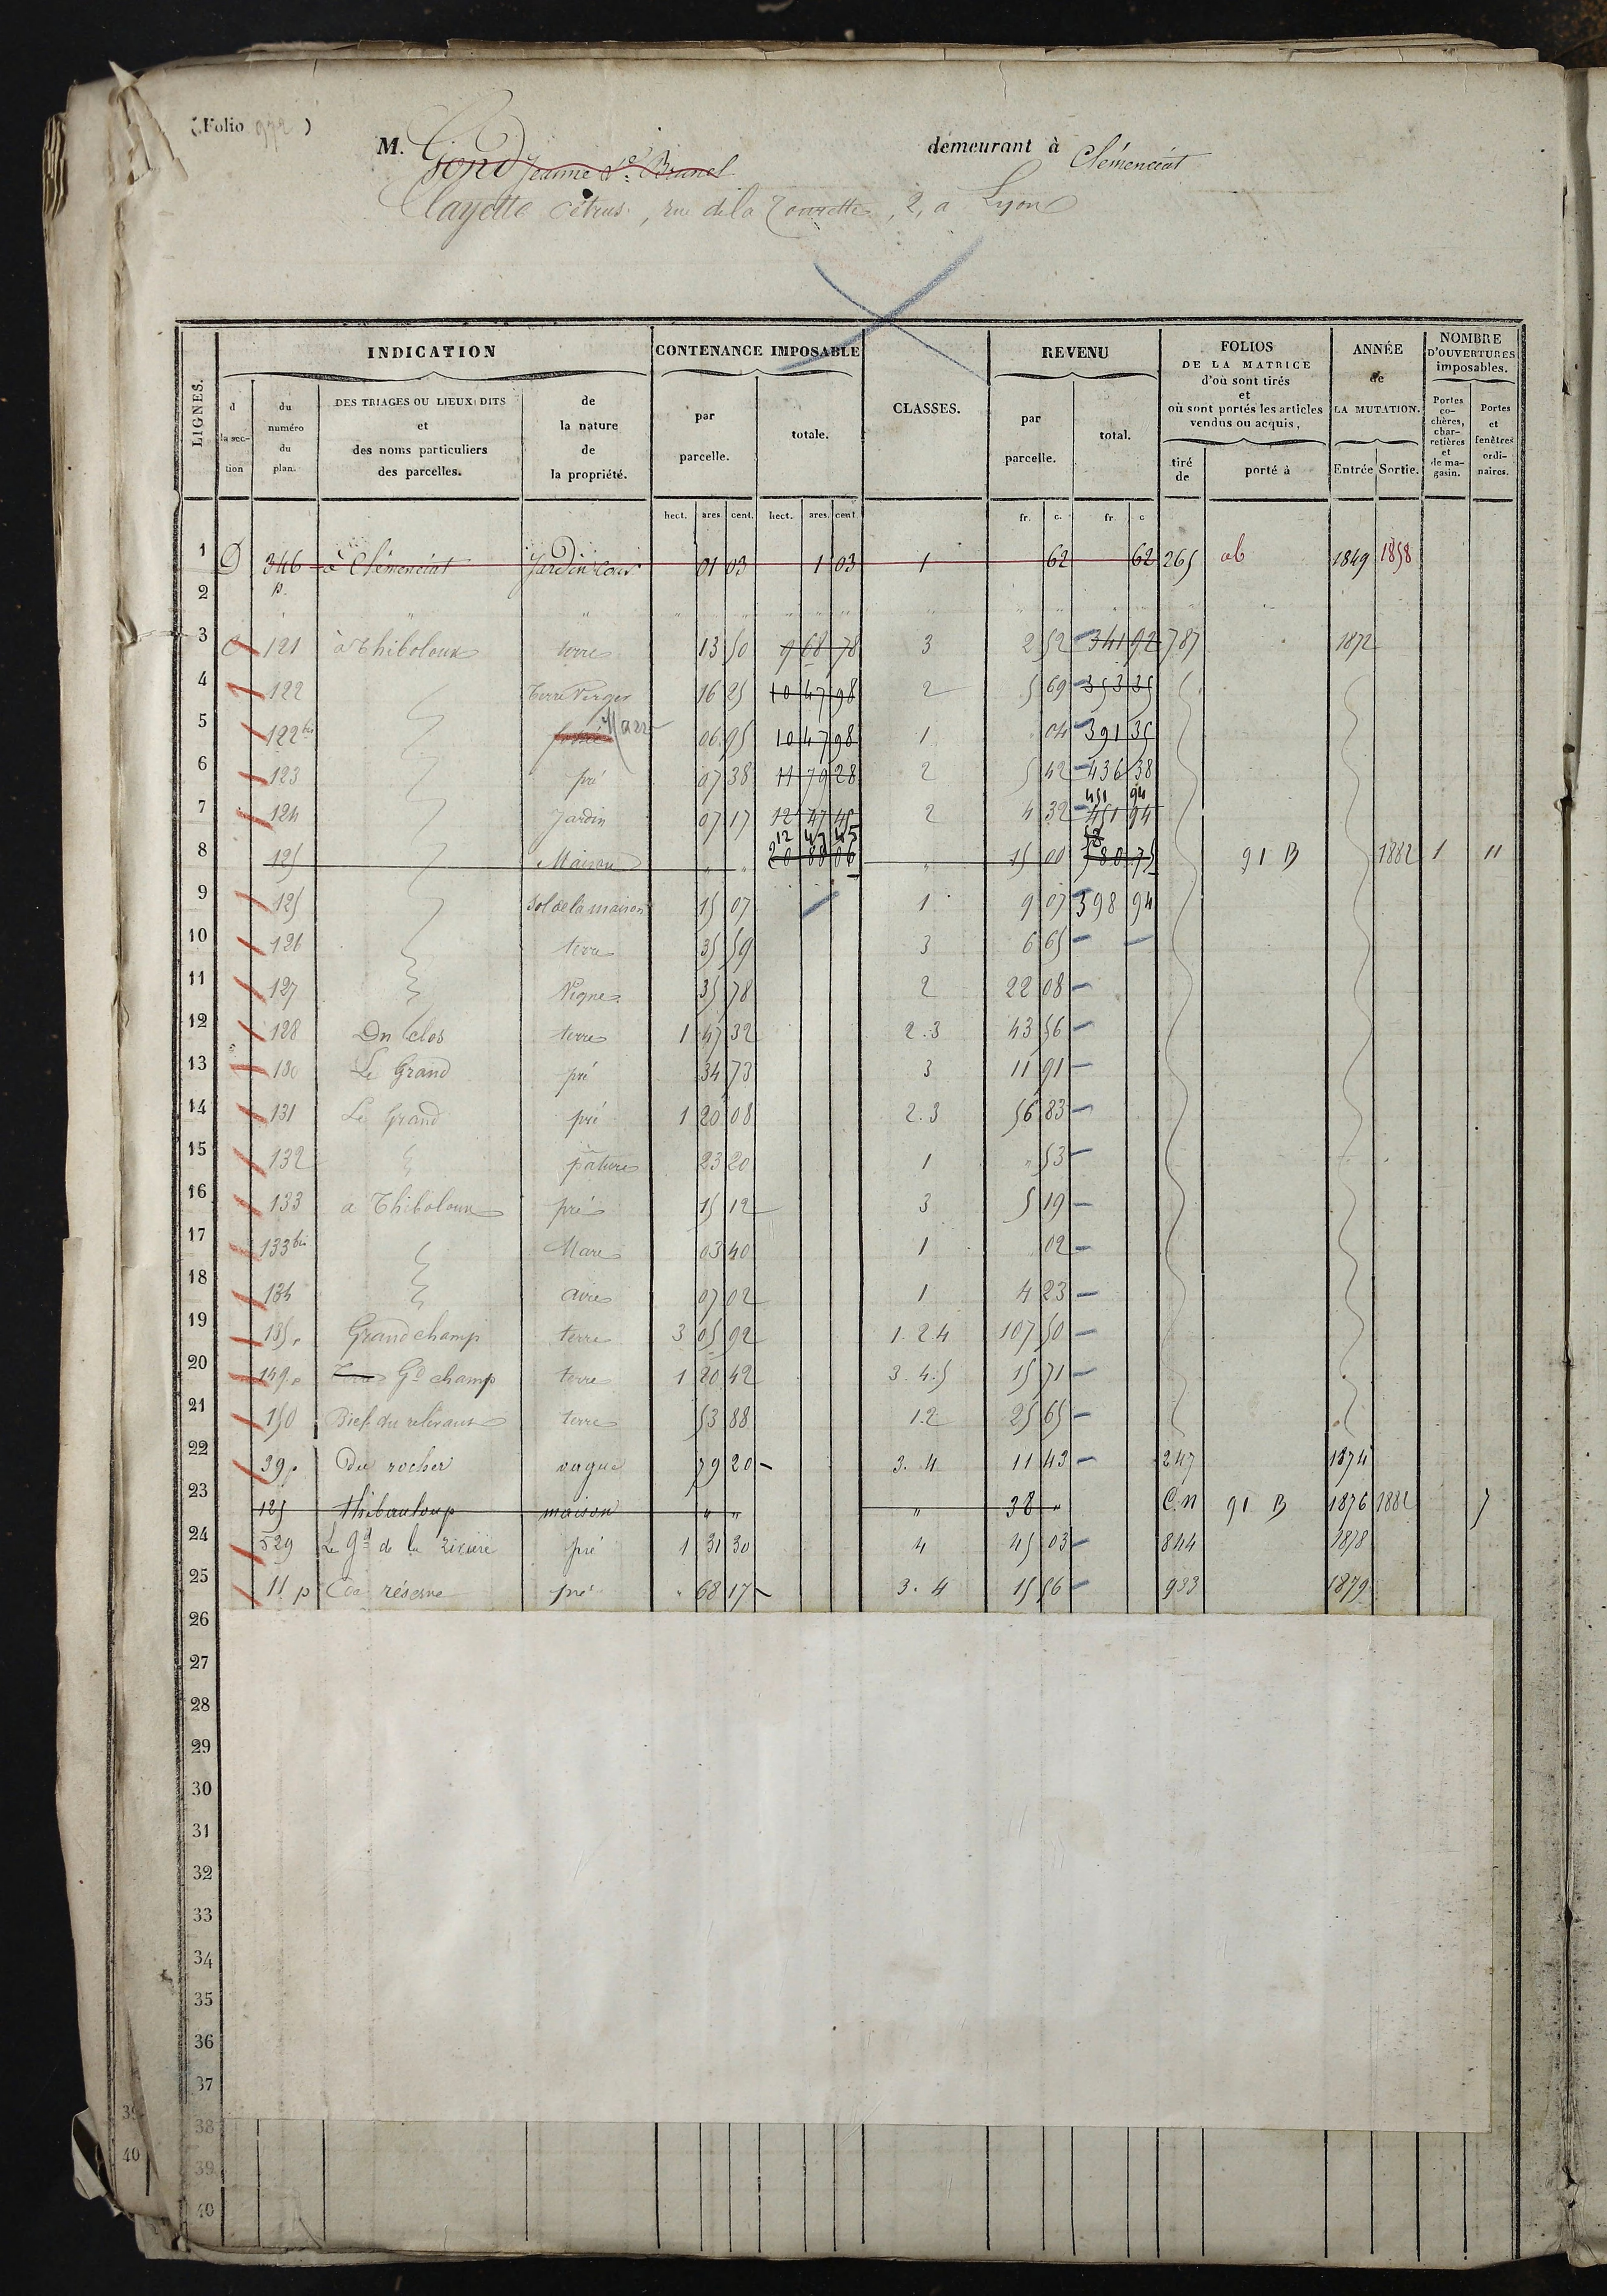 (Folio 972)
M. Gond Jeanne de Brunel demeurant à Clémenciat
Clayette Pétrus, rue de la Tourette, 2, a Lyon
LIGNES. INDICATION CONTENANCE IMPOSABLE CLASSES. REVENU FOLIOS DE LA MATRICE d'où sont tirés et où sont portés les articles vendus ou acquis, ANNÉE de LA MUTATION. NOMBRE D'OUVERTURES imposables.
d la section du numéro du plan. DES TRIAGES OU LIEUX DITS et des noms particuliers des parcelles. de la nature de la propriété. par parcelle. totale. par parcelle. total. tiré de porté à Entrée Sortie. Portes cochères, charretières et de magasin. Portes et fenêtres ordinaires.
hect. ares cent. hect. ares. cent. fr. c. fr. c
1 D 346 à Clémenciat Jardin cour 01 03 1 03 1 62 62 265 ab 1849 1858
2 p. " " " " " " "
3 C 121 à Thiboloux terre 13 50 9 68 78 3 2 52 341 92 787 1872
4 122 Terre Verger 16 25 10 47 98 2 5 69 353 35
5 122 bis Mare 06 95 10 47 98 1 04 391 35
6 123 pré 07 38 11 79 28 2 5 42 436 38
451 94
7 124 Jardin 07 17 12 47 45 2 4 32 451 94
12 47 45
8 125 Maison " " 20 88 06 " 15 00 580 75 91 B 1882 1 11
9 125 Sol de la maison 15 07 1 9 07 398 94
10 126 terre 35 59 3 6 65
11 127 Vigne 35 78 2 22 08
12 128 Du clos terre 1 47 32 2.3 43 56
13 130 Le Grand pré 34 73 3 11 91
14 131 Le Grand pré 1 20 08 2.3 56 83
15 132 pature 23 20 1 " 53
16 133 a Thiboloux pré 15 12 3 5 19
17 133 bis Mare 03 40 1 02
18 134 aire 07 02 1 4 23
19 135 Grand champ terre 3 05 92 1.2 4 107 50
20 149 Gd champ terre 1 20 42 3.4.5 15 71
21 150 Bief du relevant terre 53 88 1.2 25 65
22 39 Du rocher vague 79 20 3.4 11 43 247 1874
23 125 Thibauloup maison " " " 38 " C.n 91 B 1876 1882 7
24 529 Le gd de la rivière pré 1 31 30 4 45 03 844 1878
25 11 p La réserve pré " 68 17 3.4 15 56 933 1879
26
27
28
29
30
31
32
33
34
35
36
37
38
39
40
39
40